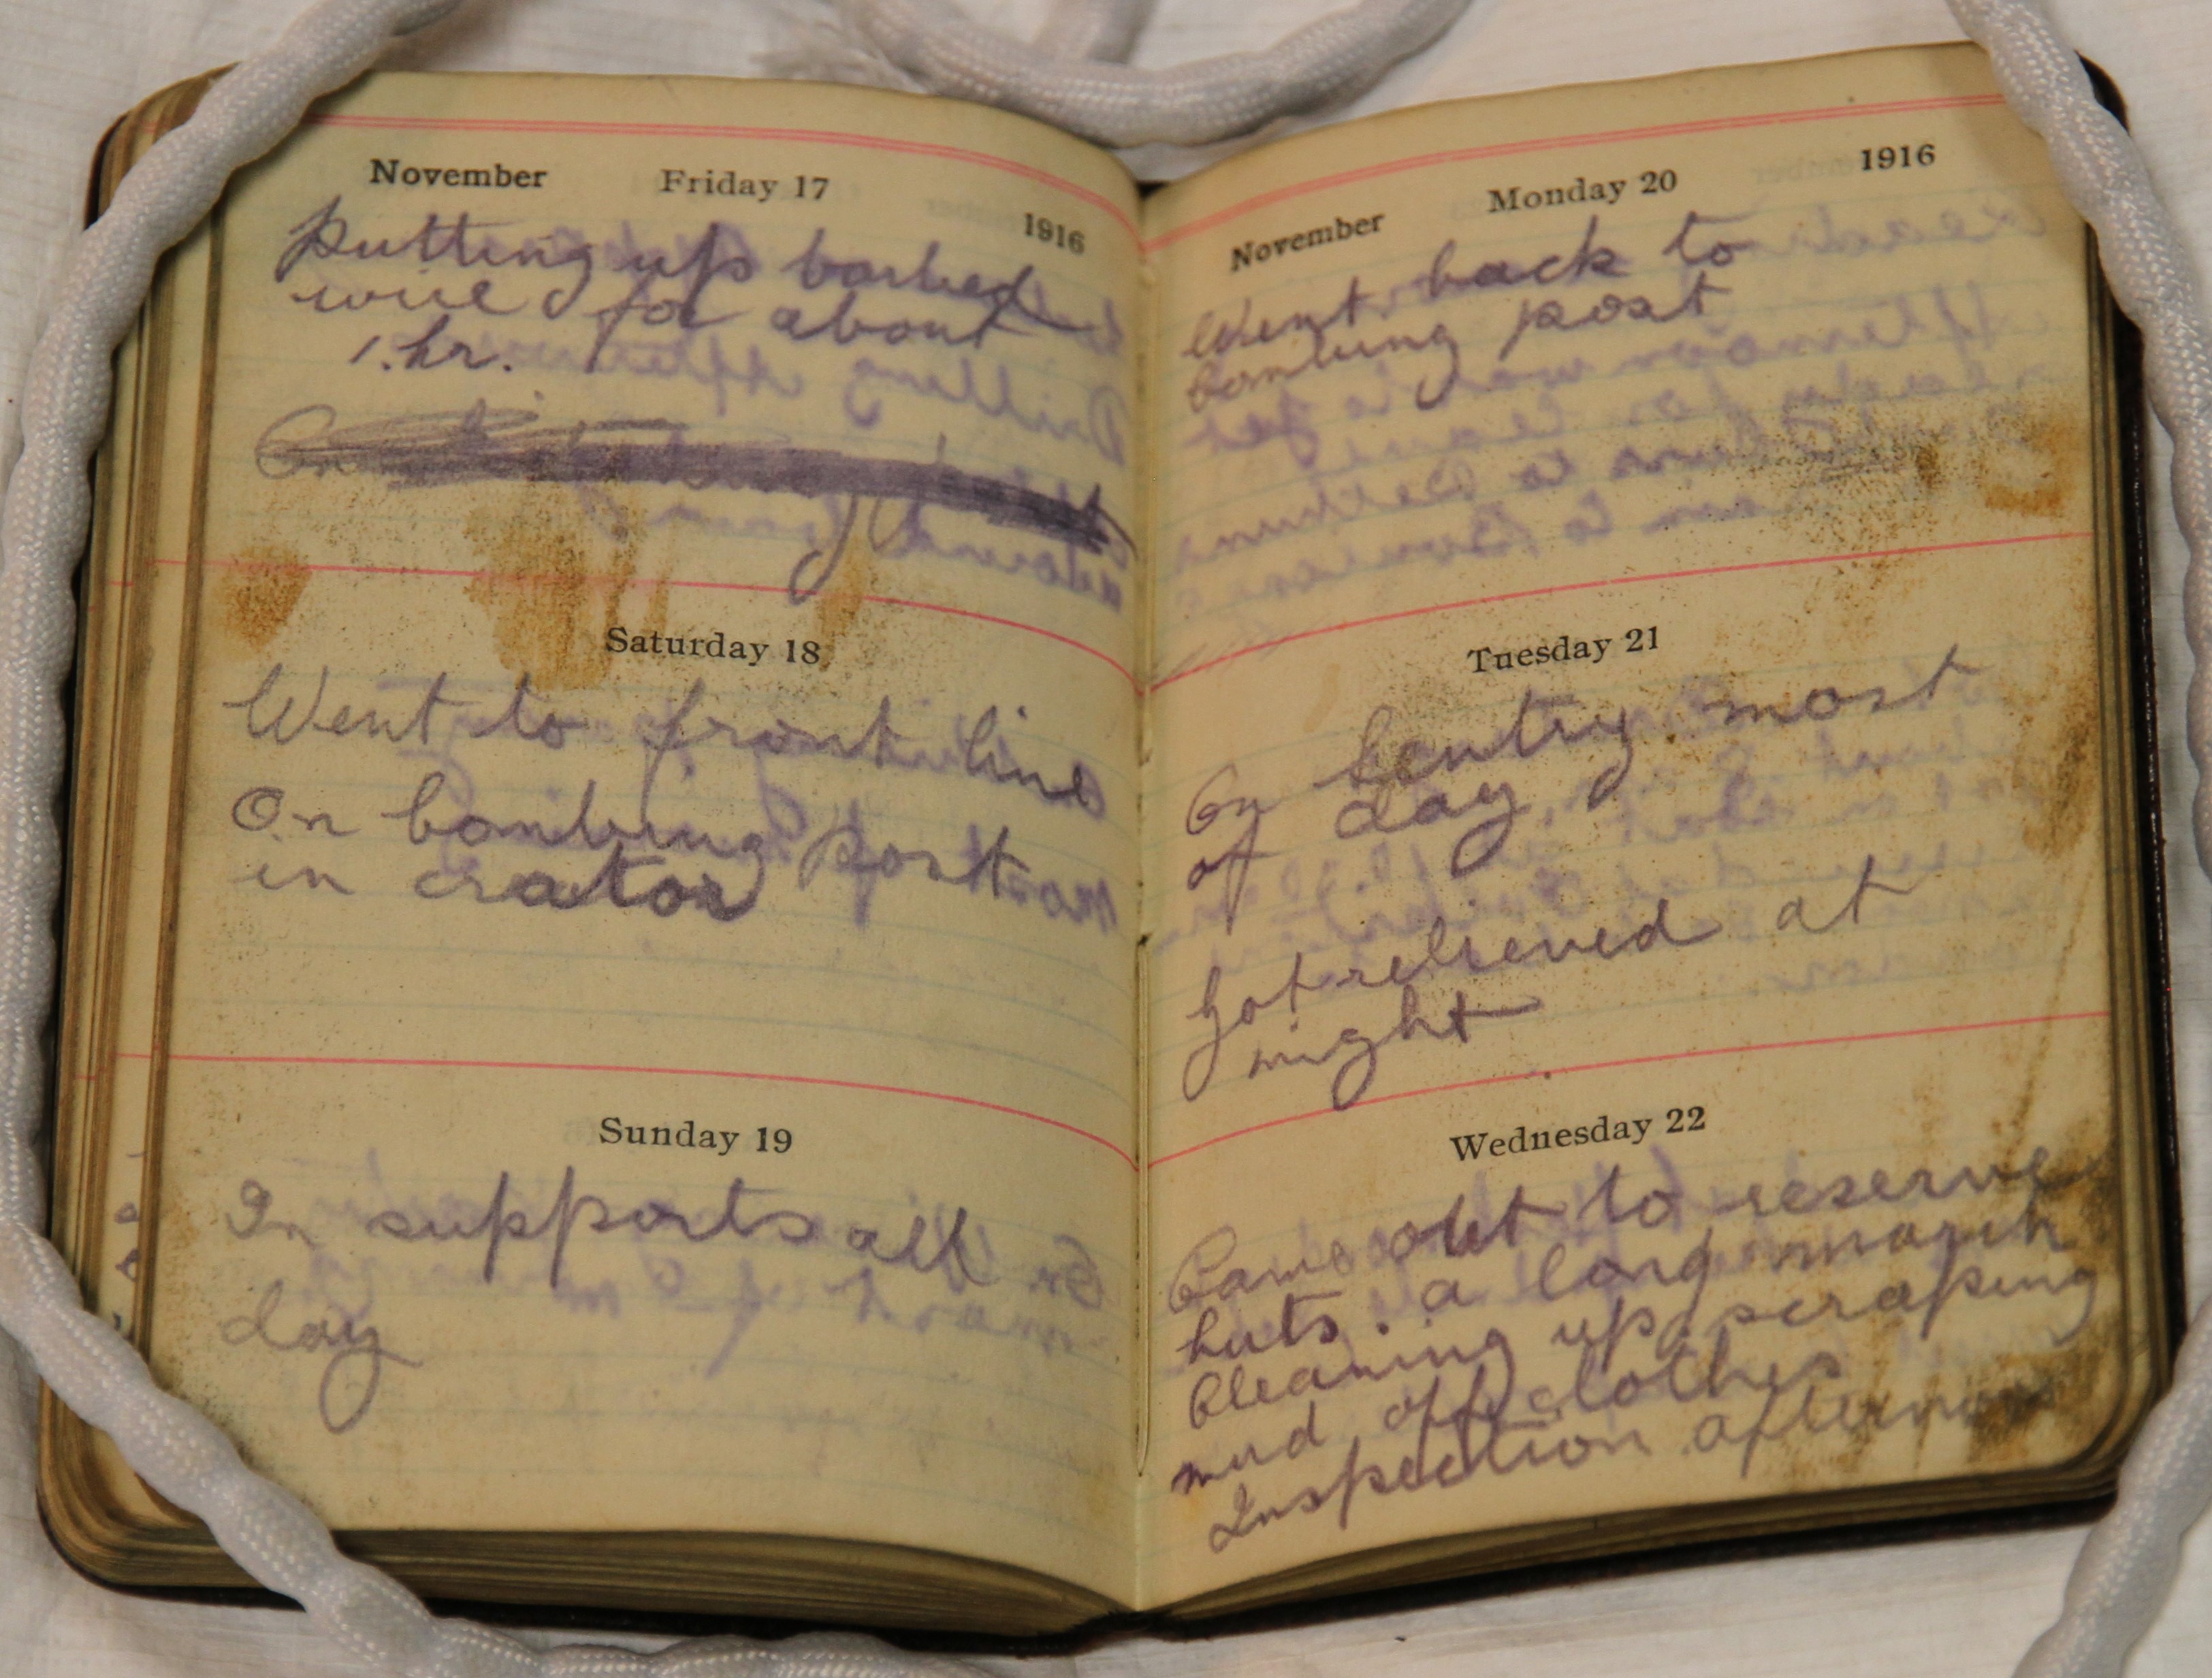 November Friday 17 1916
Putting up barbed
wire for about
1. hr.
On
Saturday 18
Went to front line
On bombing post
in crator
Sunday 19
In supports all
day
November Monday 20 1916
Went back to
bombing post
Tuesday 21
On sentry most
of day
Got relieved at
night
Wednesday 22
Came out to reserve
huts. a long march
Cleaning up, scraping
mud off clothes
Inspection afternoon